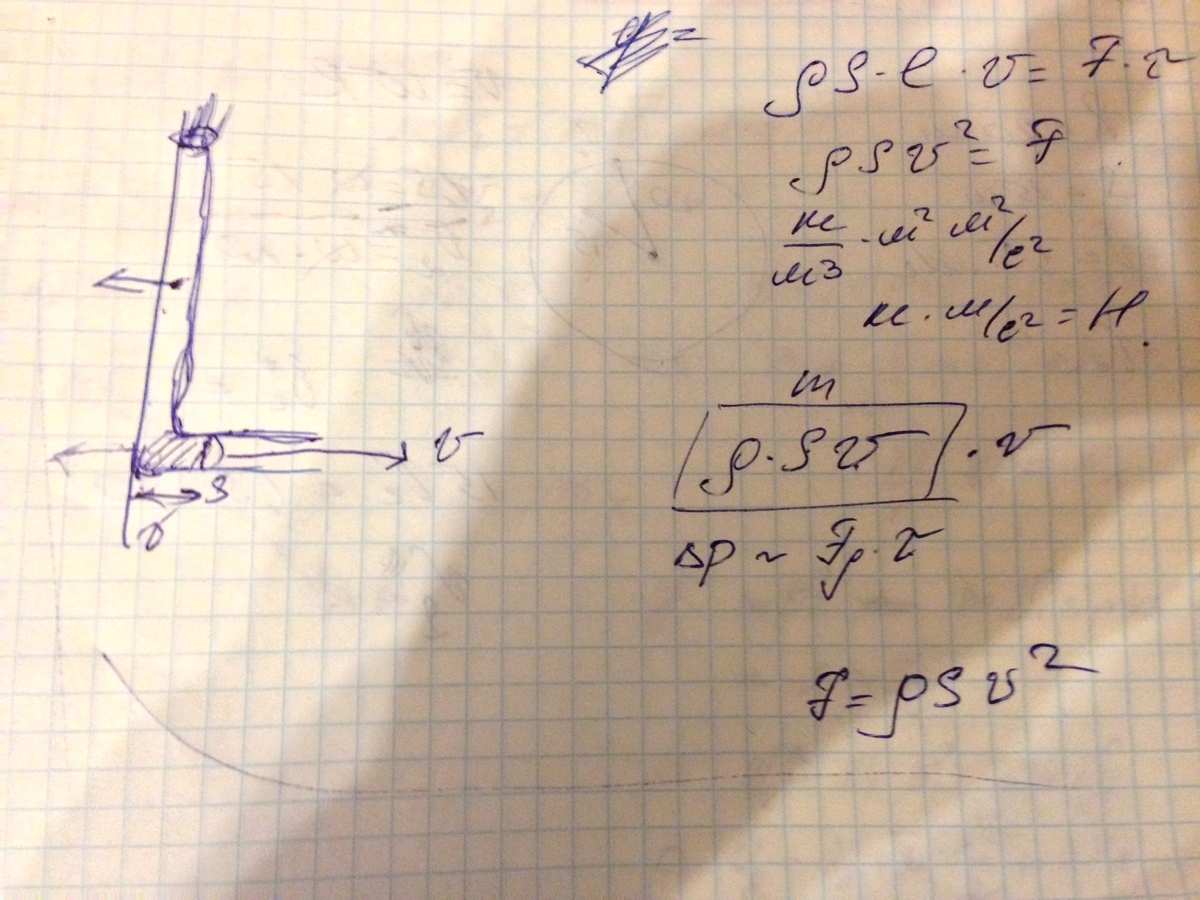 ρS·l·v = F·τ
ρSv² = F
кг/м3 · м² м²/с²
кг·м/с² = Н.
m
ρ·Sv · v
v
S
v
Δp ~ Fр·τ
F = ρSv²